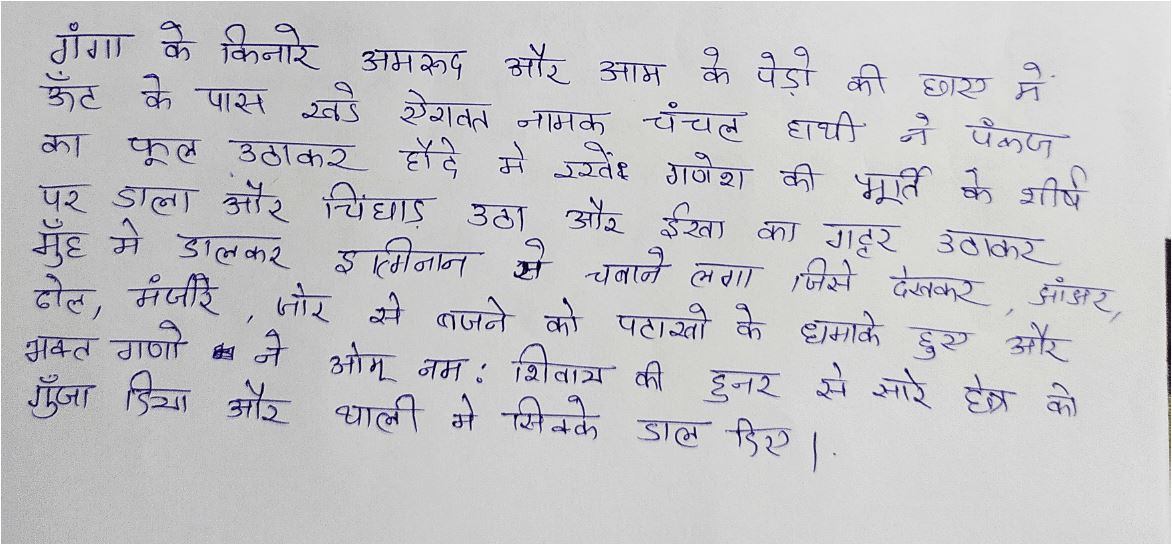 गँगा के किनारे अमरूद और आम के पेड़ो की छाए में
ऊँट के पास खडे ऐरावत नामक चंचल हाथी ने पँकज
का फूल उठाकर हौदे मे रखे गणेश की मूर्ति के शीर्ष
पर डाला और चिंघाड़ उठा और ईख का गट्टर उठाकर
मुँह मे डालकर इत्मिनान से चबाने लगा जिसे देखकर, झांझर,
ढोल, मंजीरे, जोर से बजने को पटाखो के धमाके हुए और
भक्त गणो ने ओम् नमः शिवाय की हुनर से सारे क्षेत्र को
गुँजा दिया और थाली मे सिक्के डाल दिए।